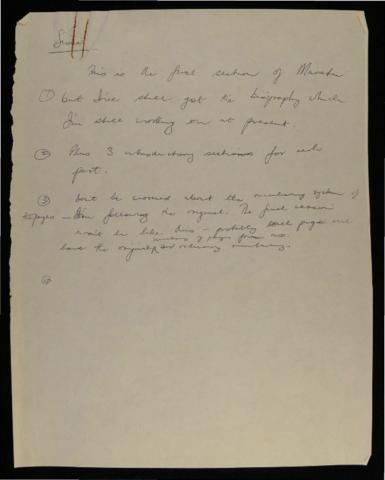 This is the final section of
① but I've still got the biography which
I'm still working on at present.
② Plus 3 introductory sections for each
part.
③ Don't be worried about the numbering system of
pages — I'm following the original. The final version
won't be like this – probably each page will
have the original ordinary numbering.